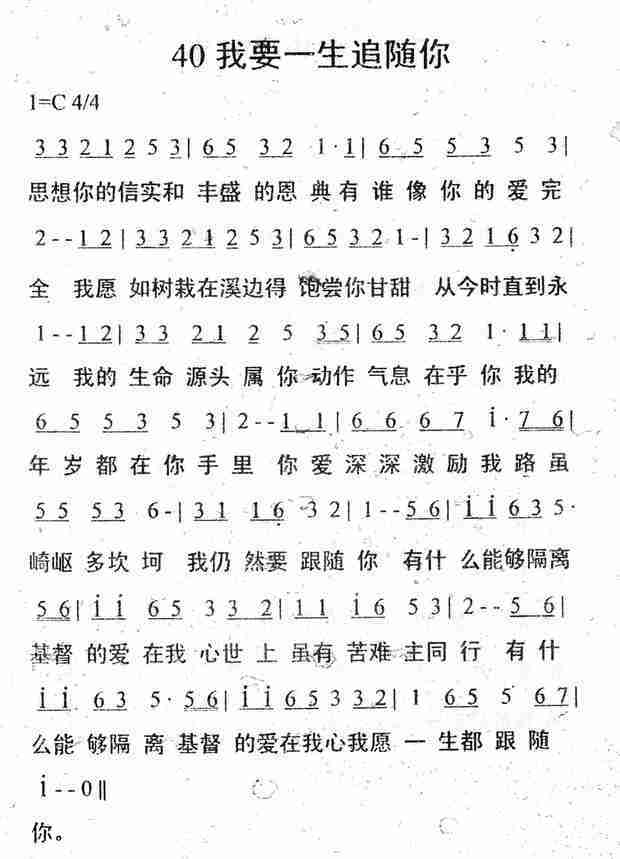 40 我要一生追随你
1=C 4/4
3 3 2 1 2 5 3| 6 5 3 2 1·1| 6 5 5 3 5 3|
思想你的信实和 丰盛 的恩 典有 谁 像 你 的 爱 完
2--1 2|3 3 2 1 2 5 3|6 5 3 2 1-|3 2 1 6 3 2|
全 我愿 如树栽在溪边得 饱尝你甘甜 从今时直到永
1--1 2|3 3 2 1 2 5 3 5|6 5 3 2 1·1 1|
远 我的 生命 源头 属 你 动作 气息 在乎 你 我的
6 5 5 3 5 3|2--1 1|6 6 6 7 i·7 6|
年 岁 都 在 你 手 里 你 爱 深 深 激 励 我 路 虽
5 5 5 3 6-|3 1 1 6 3 2|1--5 6|i i 6 3 5·
崎岖 多坎 坷 我仍 然要 跟随 你 有什 么能够隔离
5 6|i i 6 5 3 3 2|1 1 i 6 5 3|2--5 6|
基督 的爱 在我 心世 上 虽有 苦难 主同 行 有 什
i i 6 3 5·5 6|i i 6 5 3 3 2|1 6 5 5 6 7|
么能 够隔 离 基督 的爱在我心我愿 一 生都 跟 随
i--0‖
你。